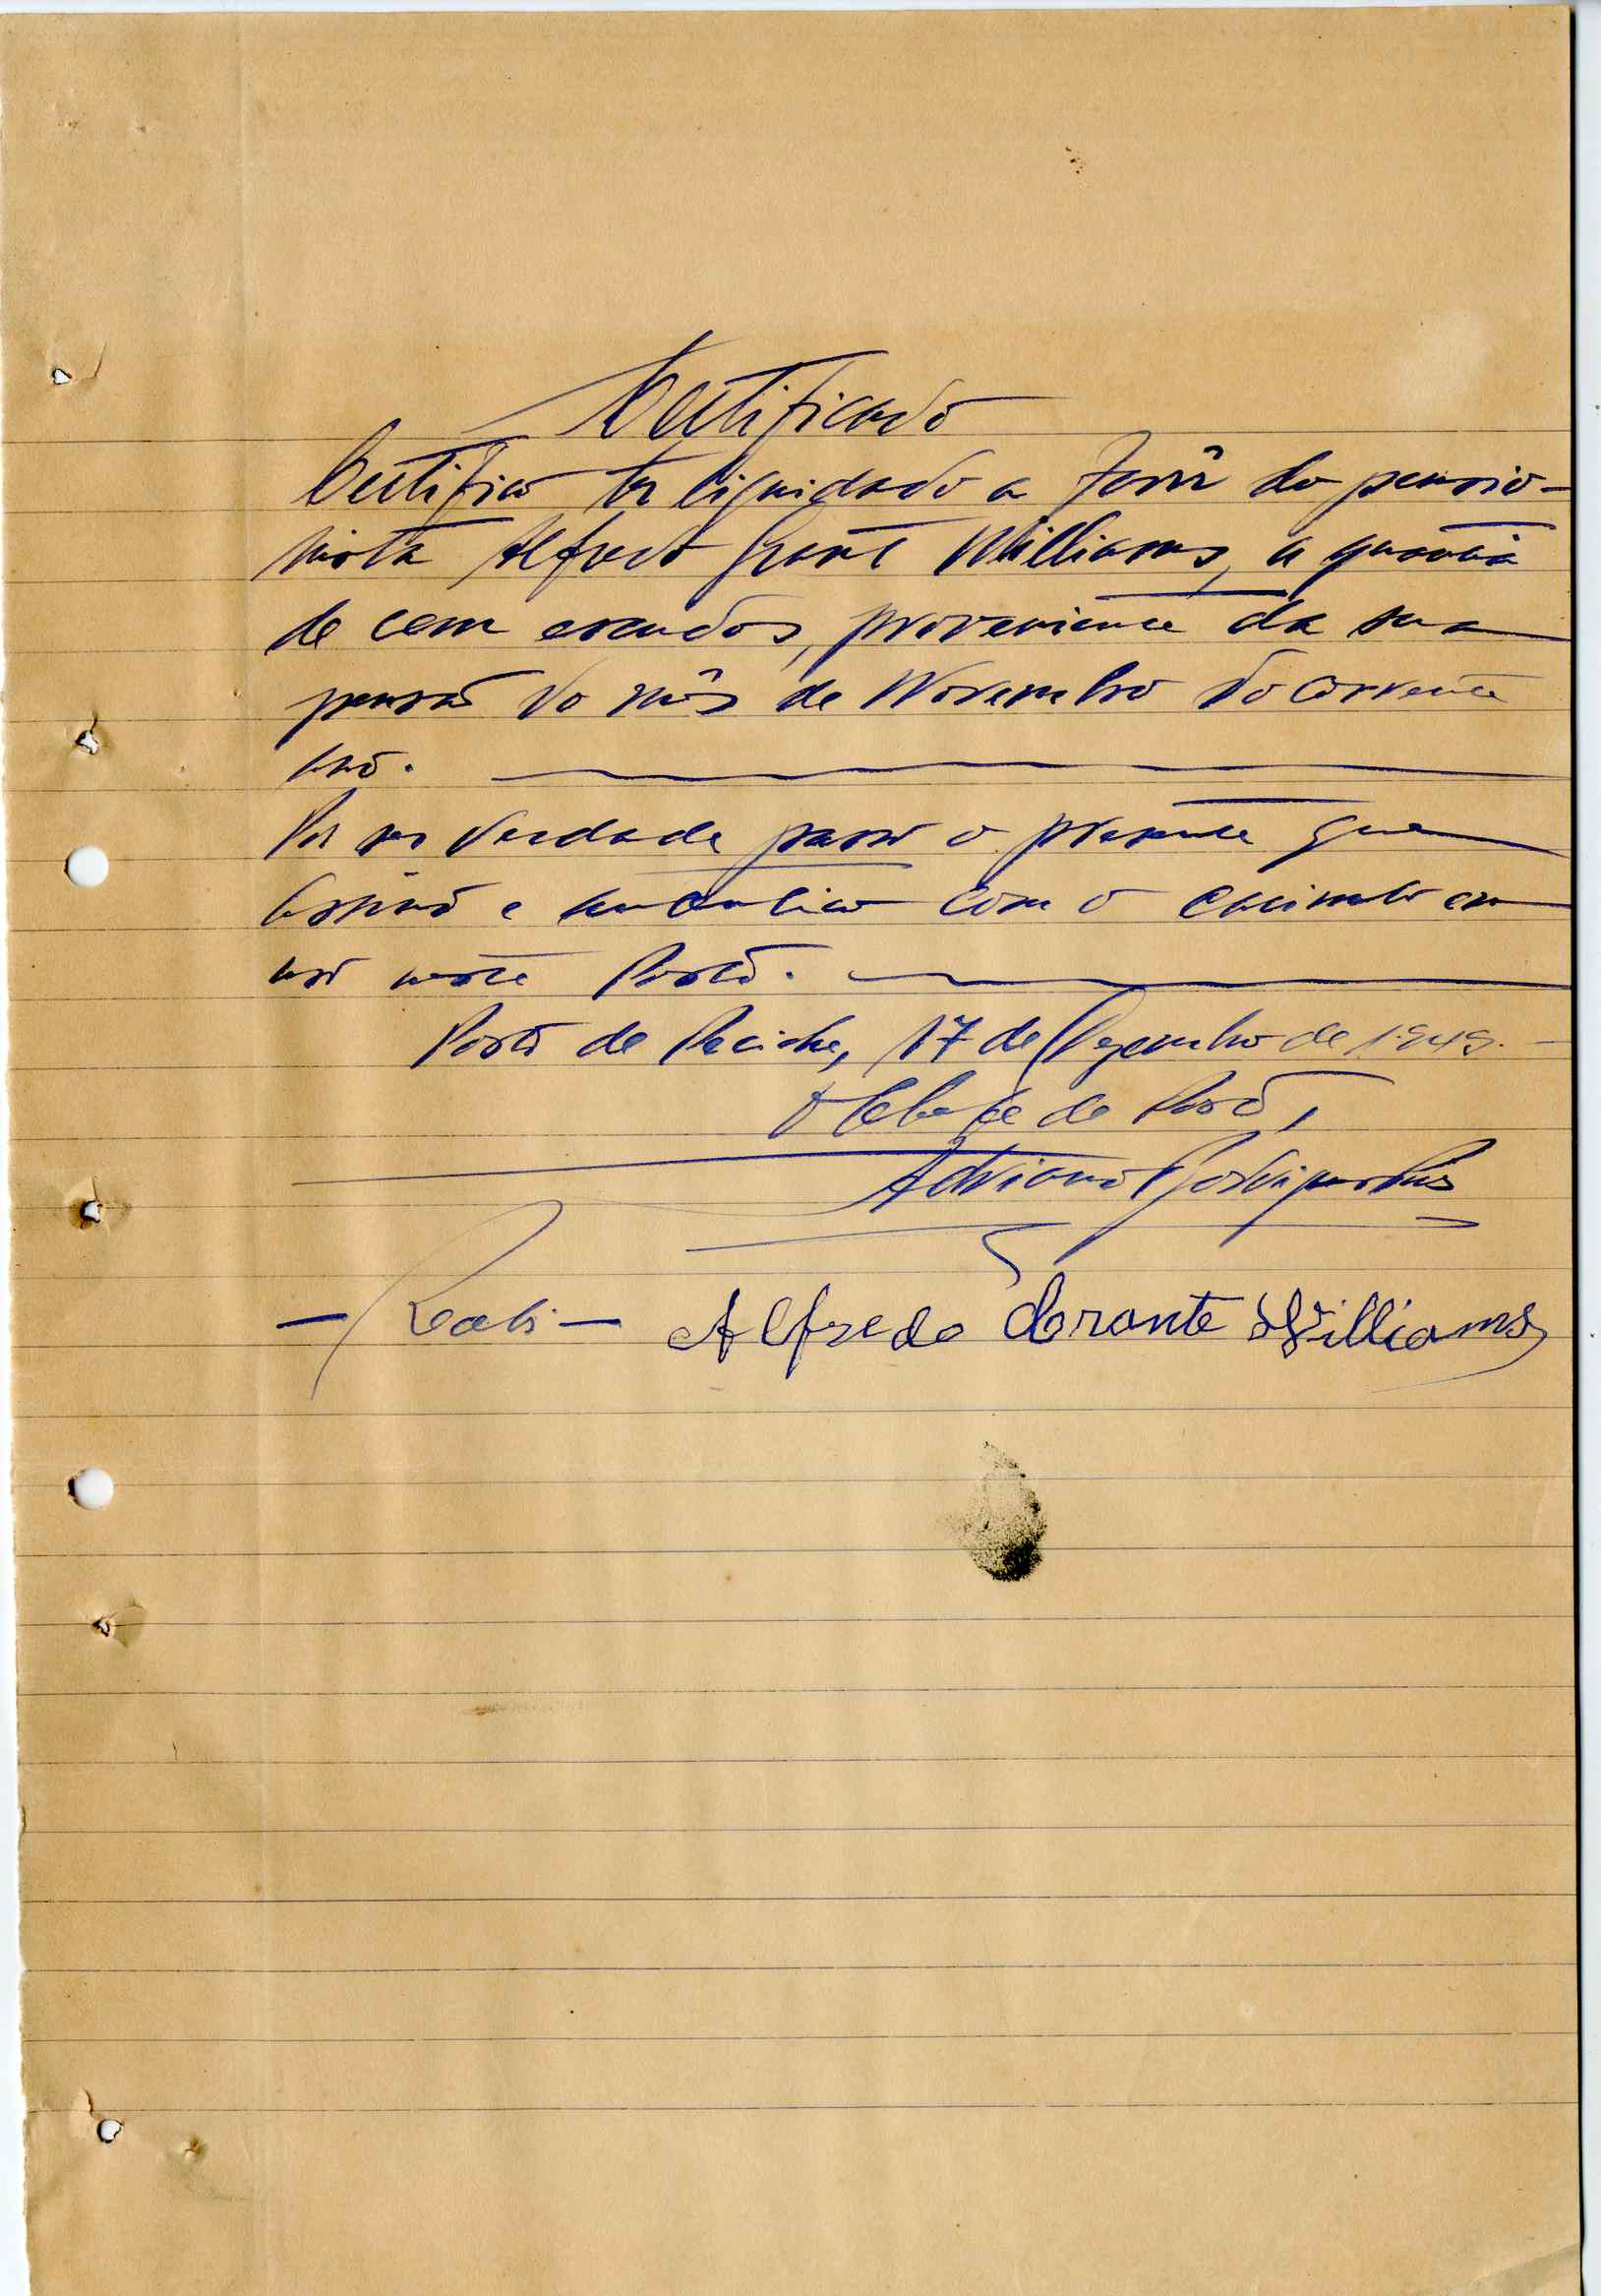 Certificado
Certifico ter liquidado a José do pensio-
nista Alfred Grant Williams, a quantia
de cem escudos, proveniente da sua
pensão do mês de Novembro do corrente
ano.
Por ser verdade passo o presente que
assino e autentico com o carimbo em
uso neste Posto.
Posto de Peciche, 17 de Dezembro de 1949.
O Chefe de Posto,
Adriano Rodrigues Pires
Alfredo Grante Williams